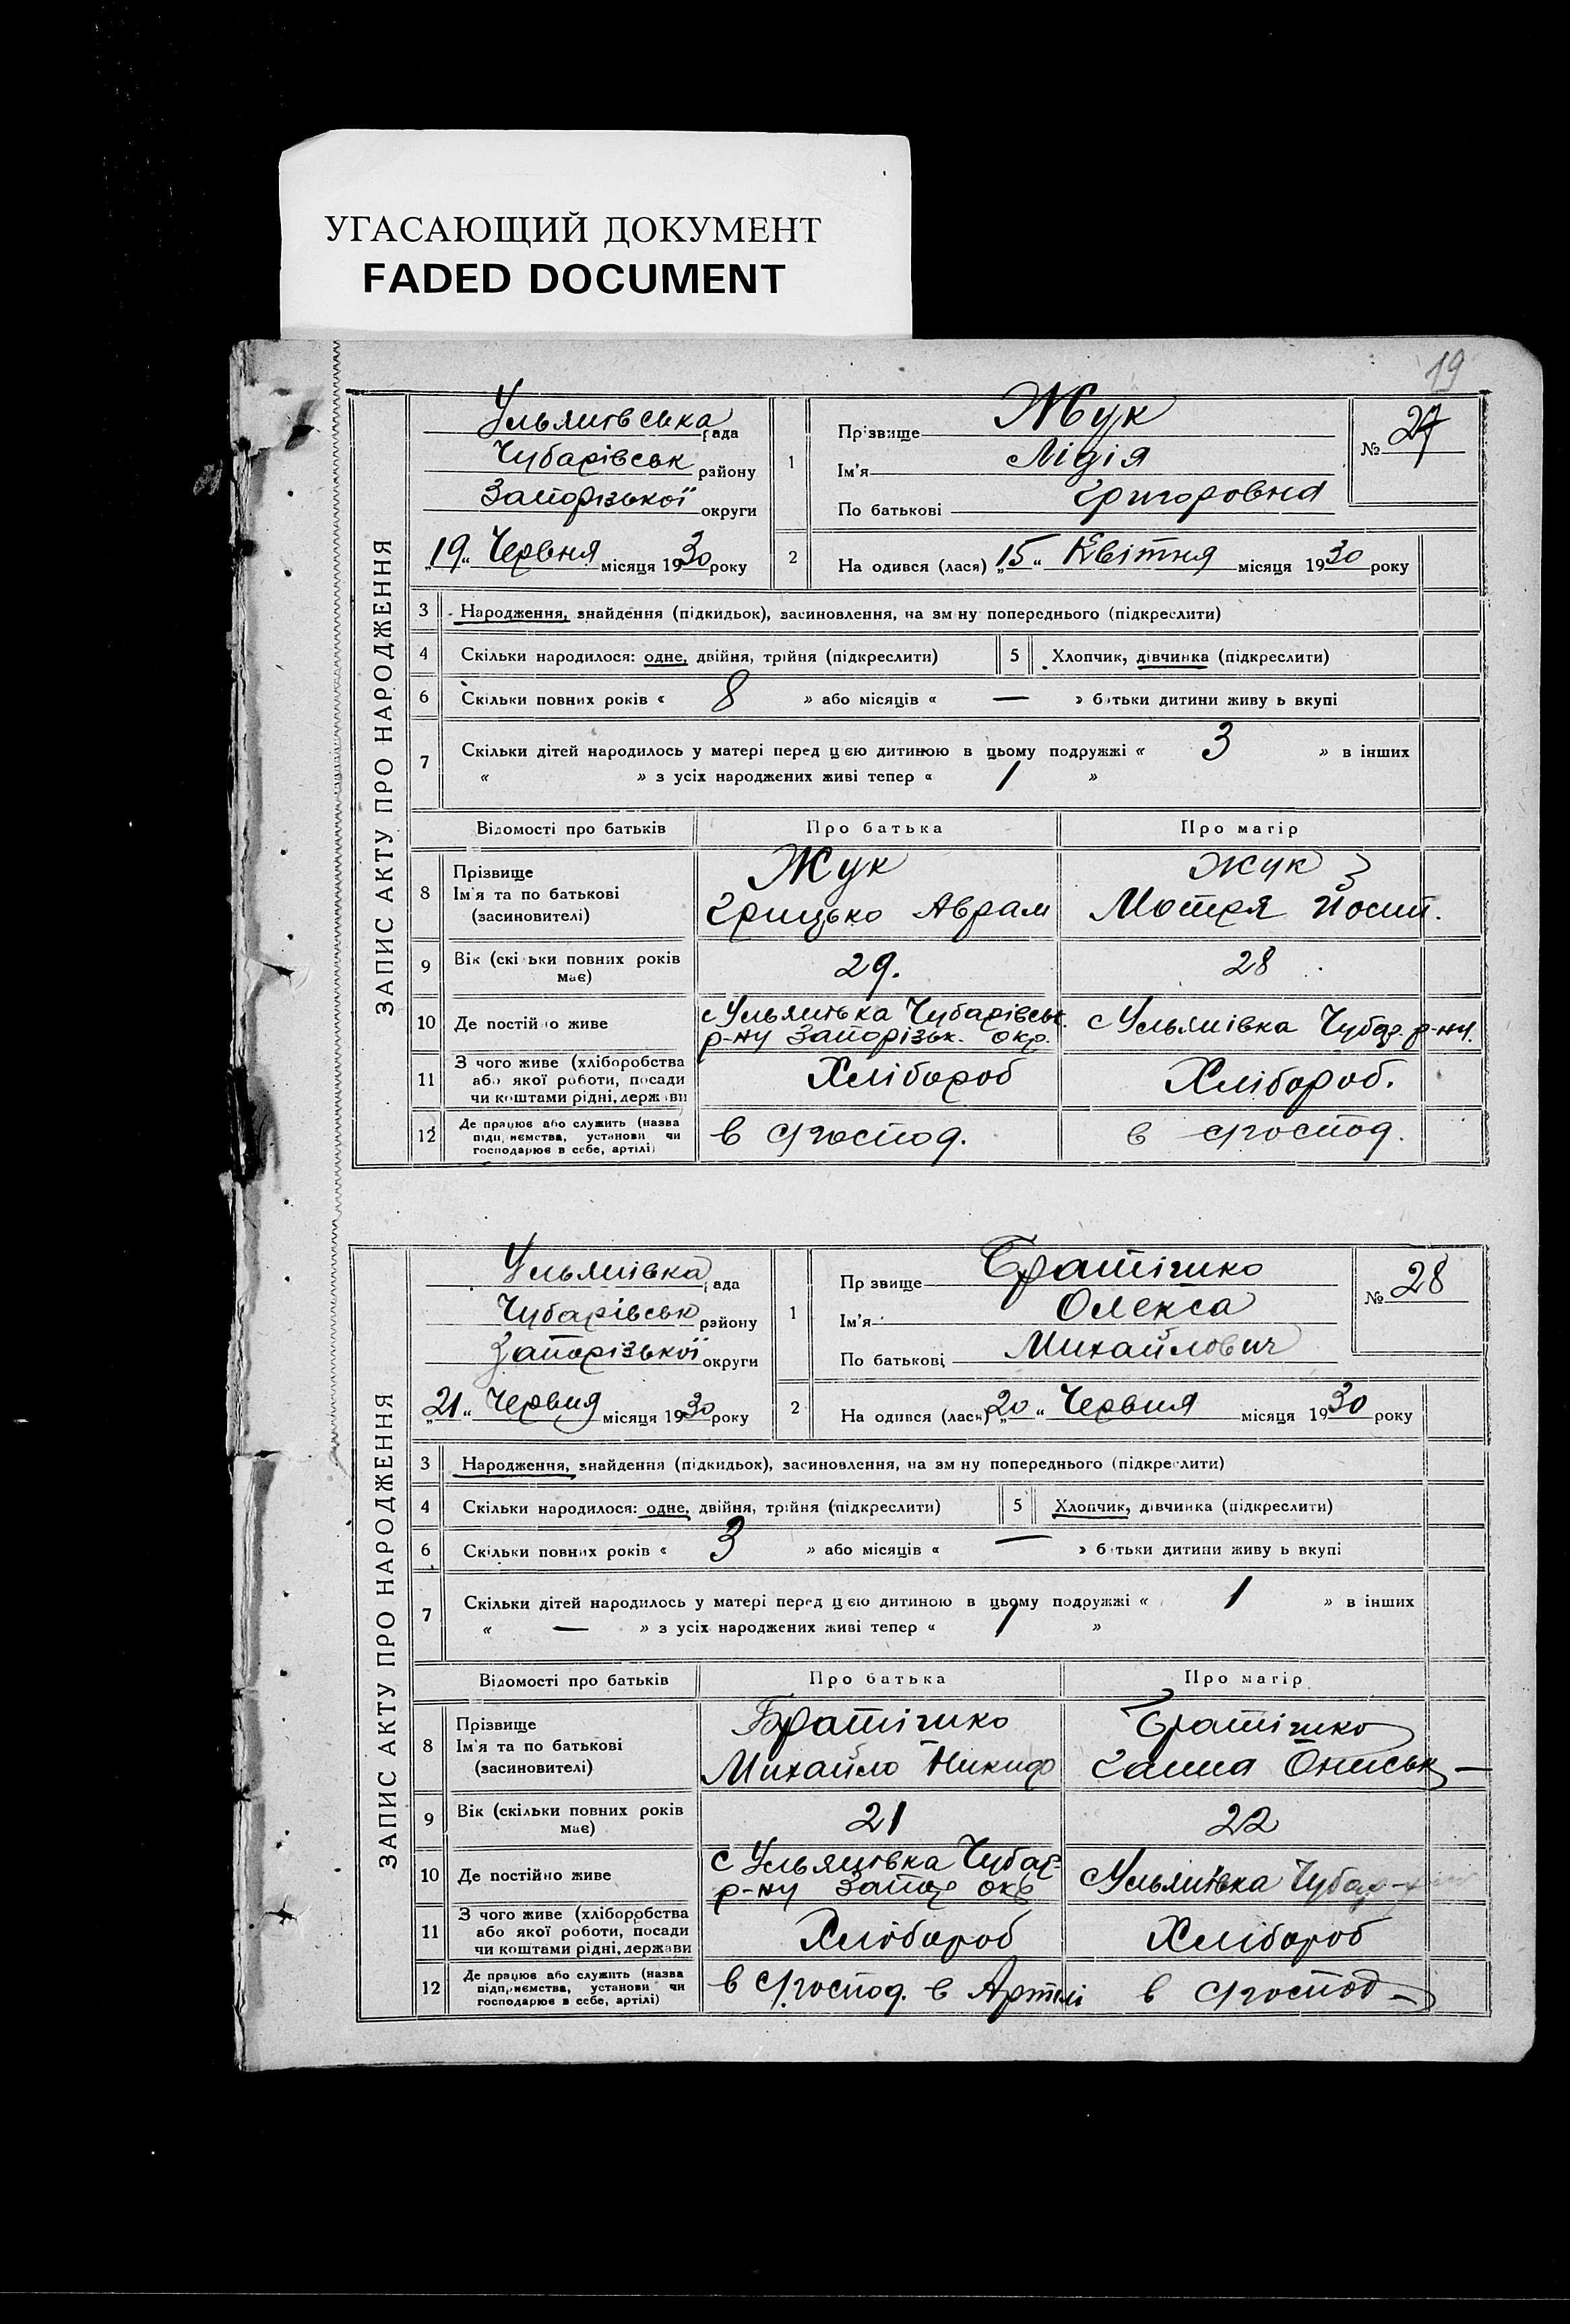 УГАСАЮЩИЙ ДОКУМЕНТ
FADED DOCUMENT
19
ЗАПИС АКТУ ПРО НАРОДЖЕННЯ
Ульянівська рада
Чубарівськ району
Запорізької округи
„19“ Червня місяця 1930 року
1 Прізвище Жук
Ім'я Лідія
По батькові Григоровна
№ 27
2 На одився (лася) „15“ Квітня місяця 1930 року
3 Народження, знайдення (підкидьок), засиновлення, на зм ну попереднього (підкреслити)
4 Скільки народилося: одне, двійня, трійня (підкреслити) 5 Хлопчик, дівчинка (підкреслити)
6 Скільки повних років « 8 » або місяців « — » батьки дитини живу ь вкупі
7 Скільки дітей народилось у матері перед цією дитиною в цьому подружжі « 3 » в інших
« » з усіх народжених живі тепер « 1 »
Відомості про батьків Про батька Про матір
8 Прізвище
Ім'я та по батькові
(засиновителі)
Жук
Грицько Аврам
Жук
Мотря Йосип.
9 Вік (скі ьки повних років
має)
29.
28
10 Де постійно живе
с Ульянівка Чубарівськ.
р-ну Запорізьк. окр.
с Ульянівка Чубар. р-ну.
11 З чого живе (хліборобства
або якої роботи, посади
чи коштами рідні, держави
Хлібороб
Хлібороб.
12 Де працює або служить (назва
підприємства, установи чи
господарює в себе, артілі)
в С/господ.
в с/господ.
ЗАПИС АКТУ ПРО НАРОДЖЕННЯ
Ульянівка рада
Чубарівськ району
Запорізької округи
„21“ Червня місяця 1930 року
1 Пр звище Братішко
Ім'я Олекса
По батькові Михайлович
№ 28
2 На одився (лася) „20“ Червня місяця 1930 року
3 Народження, знайдення (підкидьок), засиновлення, на зм ну попереднього (підкреслити)
4 Скільки народилося: одне, двійня, трійня (підкреслити) 5 Хлопчик, дівчинка (підкреслити)
6 Скільки повних років « 3 » або місяців « — » батьки дитини живу ь вкупі
7 Скільки дітей народилось у матері перед цією дитиною в цьому подружжі « 1 » в інших
« — » з усіх народжених живі тепер « 1 »
Відомості про батьків Про батька Про матір
8 Прізвище
Ім'я та по батькові
(засиновителі)
Братішко
Михайло Никиф
Братішко
Ганна Ониськ —
9 Вік (скільки повних років
має)
21
22
10 Де постійно живе
с Ульянівка Чубар-
р-ну Запор окр
с Ульянівка Чубар-
11 З чого живе (хліборобства
або якої роботи, посади
чи коштами рідні, держави
Хлібороб
Хлібороб
12 Де працює або служить (назва
підприємства, установи чи
господарює в себе, артілі)
в С/господ. в Артілі
в С/господ-